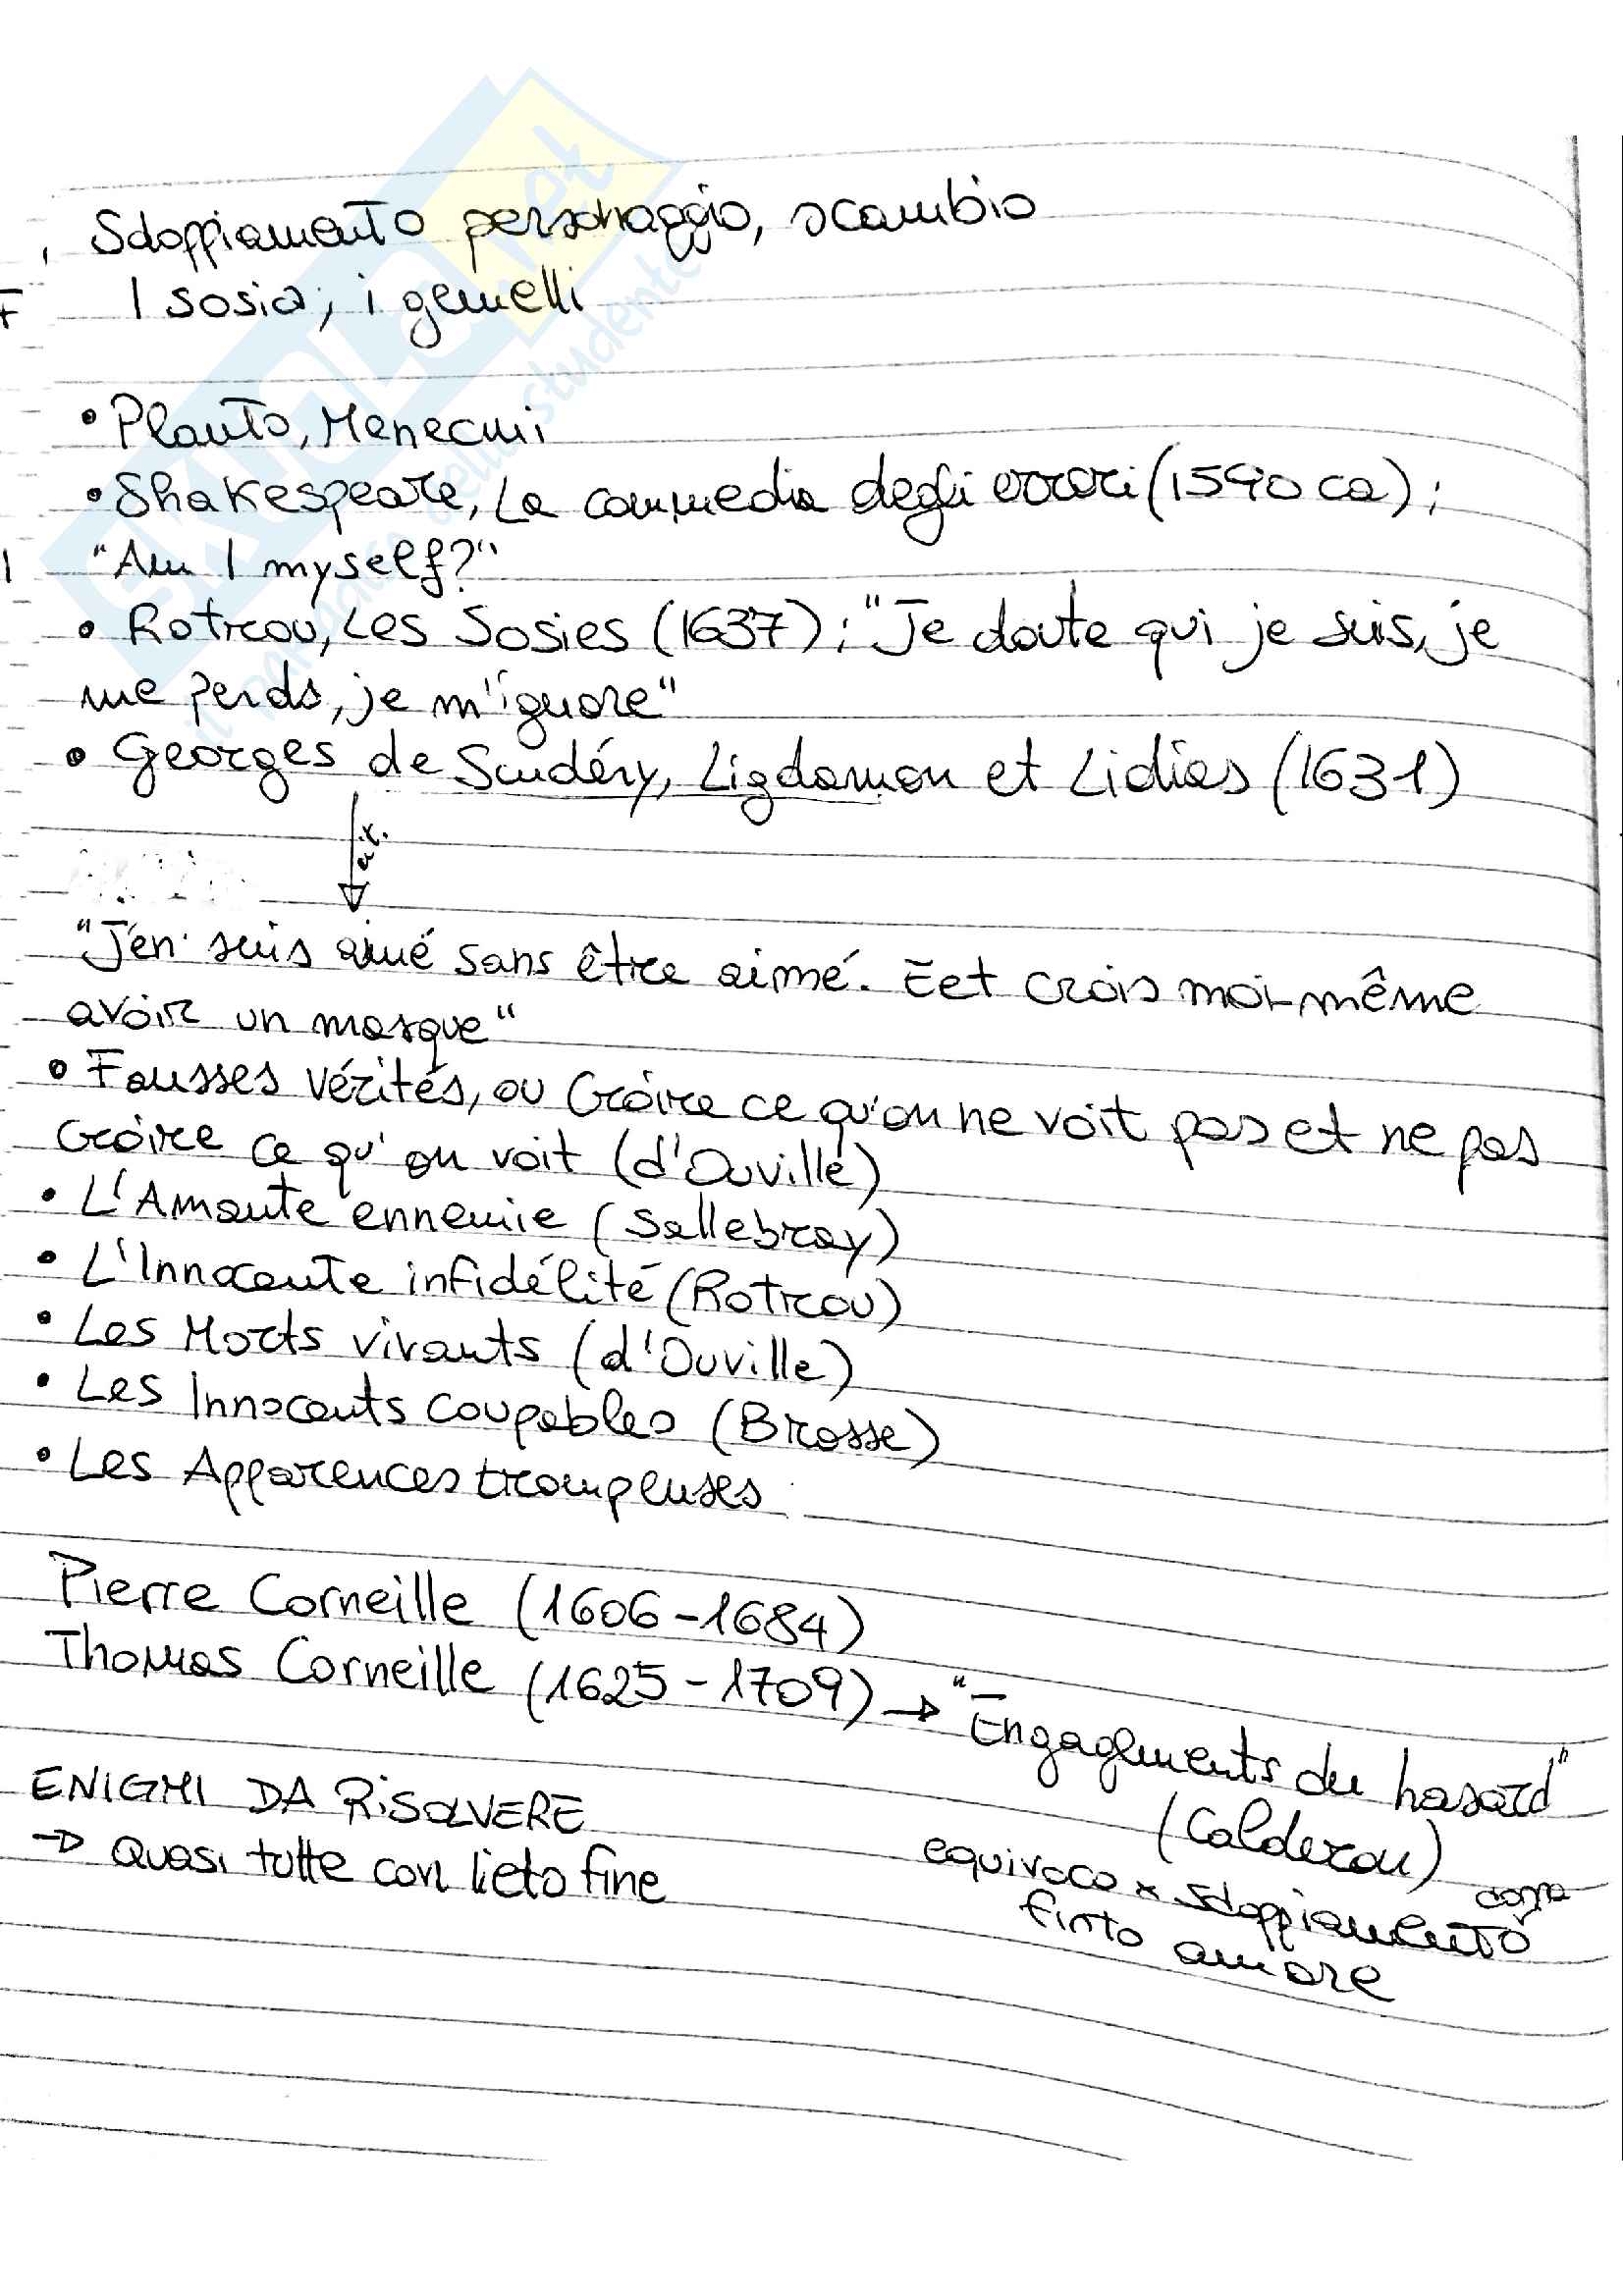 Sdoppiamento personaggio, scambio
I sosia; i gemelli
• Plauto, Menecmi
• Shakespeare, La commedia degli errori (1590 ca);
"Am I myself?"
• Rotrou, Les Sosies (1637); "Je doute qui je suis, je
me perds, je m'ignore"
• Georges de Scudéry, Ligdamon et Lidias (1631)
"J'en suis aimé sans être aimé. Eet crois moi-même
avoir un masque"
• Fausses vérités, ou Croire ce qu'on ne voit pas et ne pas
Croire ce qu'on voit (d'Ouville)
• L'Amante ennemie (Sallebray)
• L'Innocente infidélité (Rotrou)
• Les Morts vivants (d'Ouville)
• Les Innocents coupables (Brosse)
• Les Apparences trompeuses
Pierre Corneille (1606-1684)
Thomas Corneille (1625-1709) → "Engagements du hasard"
(Calderon)
equivoco x sdoppiamento
finto amore
ENIGMI DA RISOLVERE
→ Quasi tutte con lieto fine